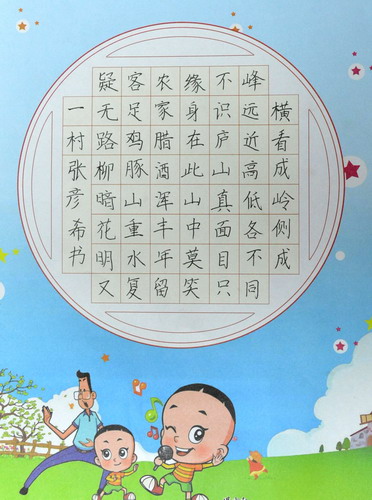 横看成岭侧成
峰远近高低各不同
不识庐山真面目只
缘身在此山中莫笑
农家腊酒浑丰年留
客足鸡豚山重水复
疑无路柳暗花明又
一村张彦希书